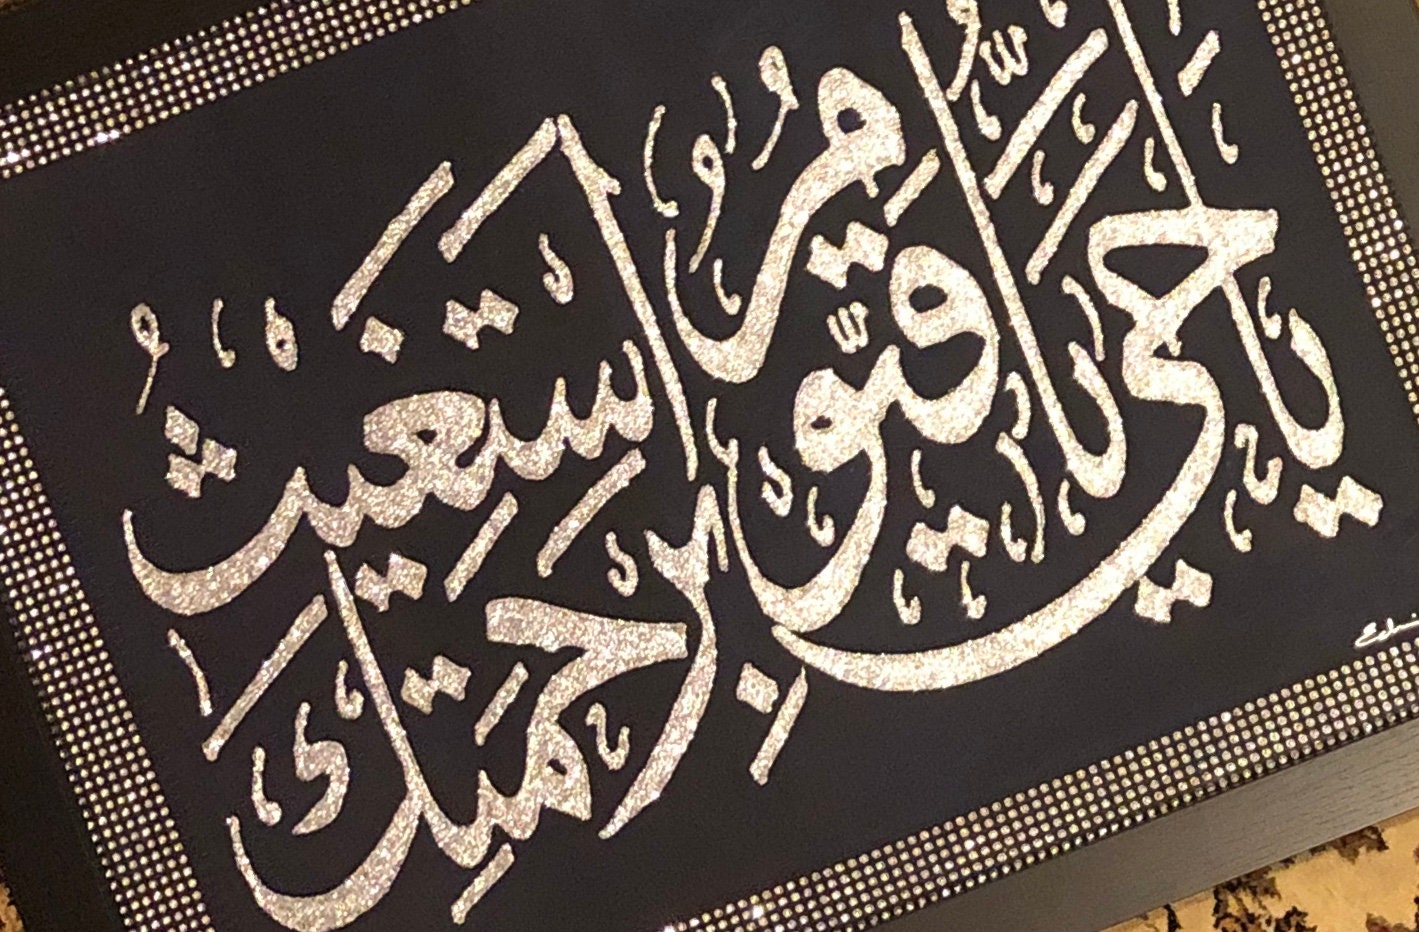 يَا حَيُّ يَا قَيُّومُ بِرَحْمَتِكَ اَسْتَغِيثُ